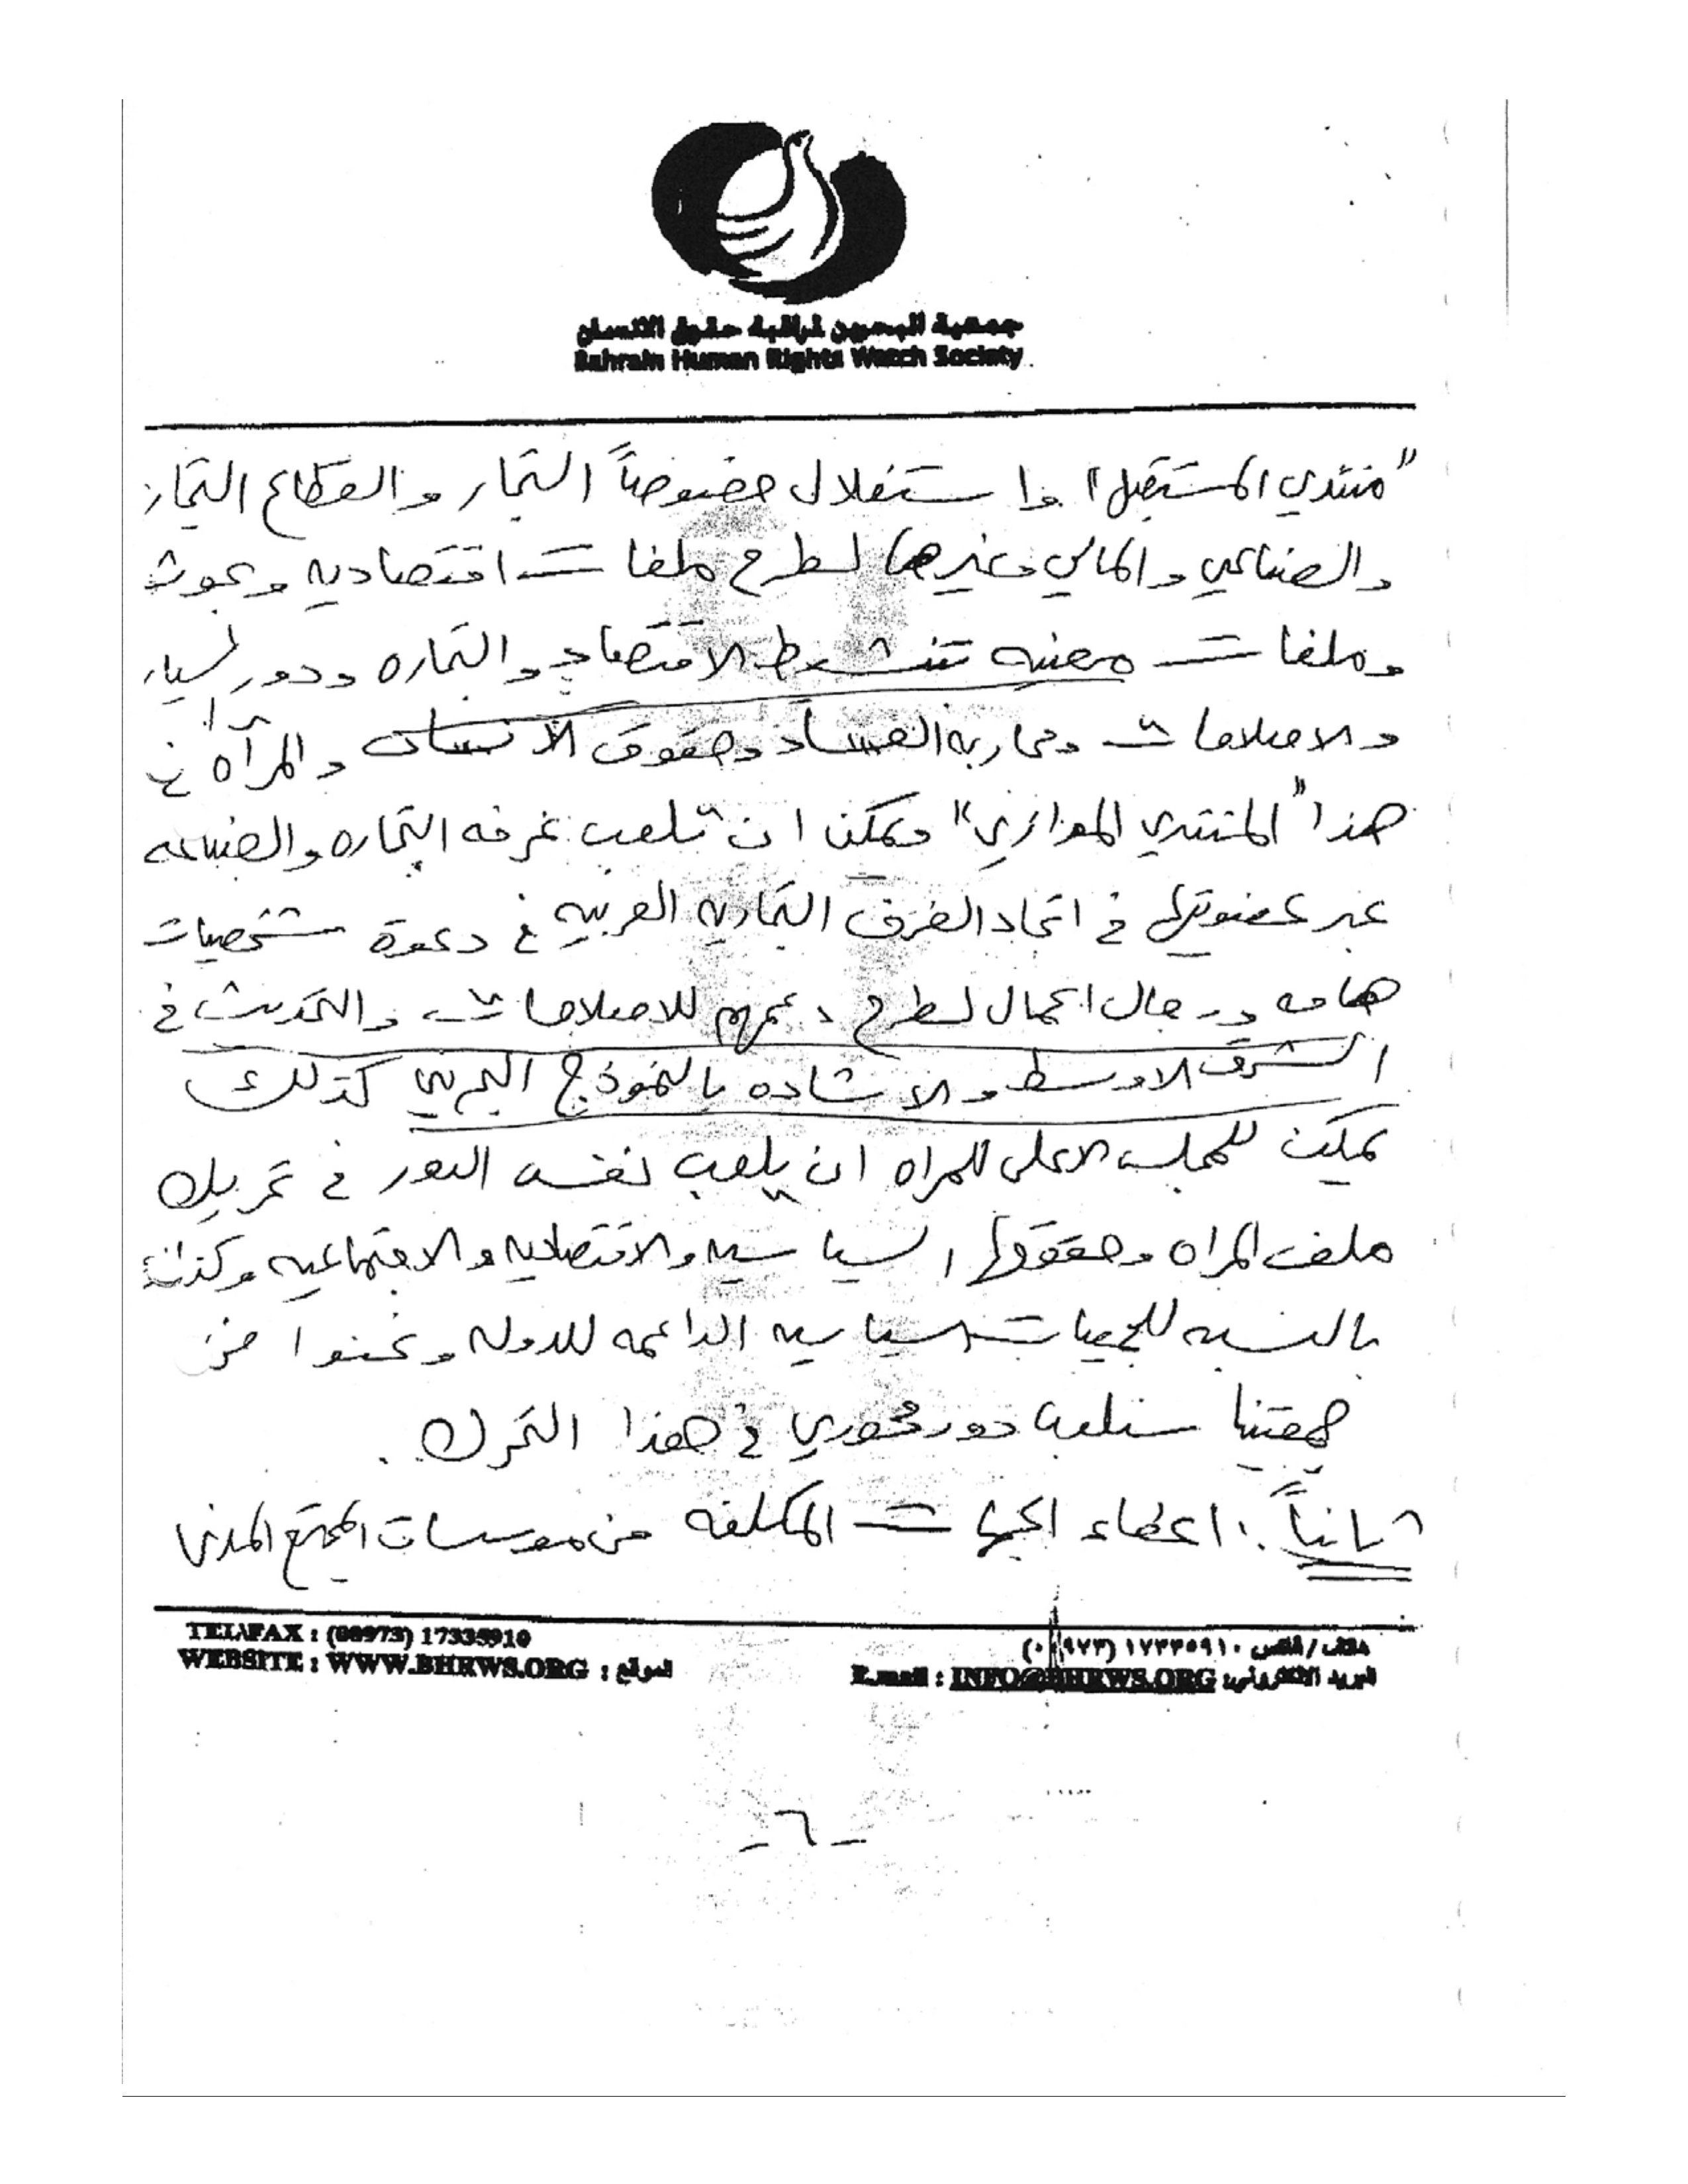 جمعية البحرين لمراقبة حقوق الانسان
Bahrain Human Rights Watch Society
"منتدى المستقبل" واستغلال خصوصاً التجار والقطاع التجار
والصناعي والمالي وغيرها لطرح ملفات اقتصاديه وبحوث
وملفات معنيه تنشيط الاقتصاد والتجاره ودور
والاصلاحات ومحاربه الفساد وحقوق الانسان والمرآه في
هذا "المنتدى الموازي" ويمكن ان تلعب غرفه التجاره والصناعه
عبر عضويتها في اتحاد الغرف التجاريه العربيه في دعوة شخصيات
هامه ورجال اعمال لطرح دعمهم للاصلاحات والتحديث في
الشرق الاوسط والاشاده بالنموذج البحريني كذلك
يمكن للمجلس الاعلى للمراه ان يلعب نفس الدور في تحريك
ملف المراه وحقوقها السياسيه والاقتصاديه والاجتماعيه وكذلك
بالنسبه للجمعيات السياسيه الداعمه للدوله ونحنوا من
جهتنا سنلعب دور محوري في هذا التحرك.
ثانياً: اعطاء الجهات المكلفه من موسسات المجتمع المدني
TEL\FAX : (00973) 17335910
هاتف/فاكس ١٧٣٣٥٩١٠ (٠٠٩٧٣)
WEBSITE : WWW.BHRWS.ORG : الموقع
E.mail : INFO@BHRWS.ORG البريد الالكتروني:
-٦-